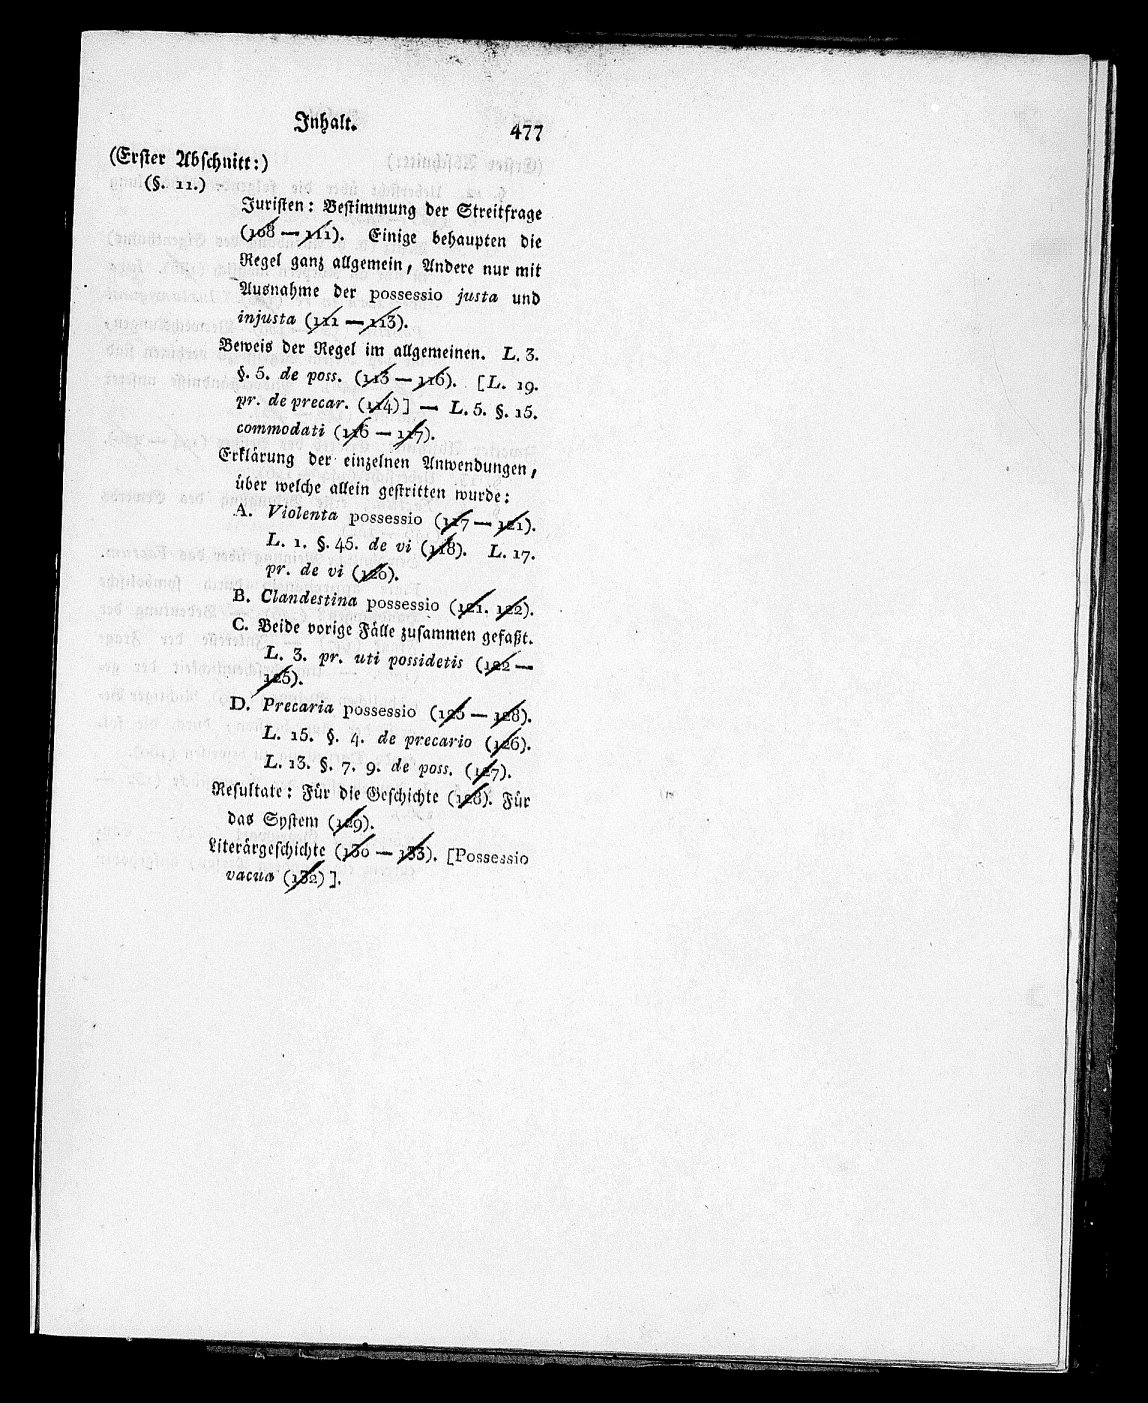 Inhalt. 477
(Erster Abschnitt:)
(§. 11.)
Juristen: Bestimmung der Streitfrage
(108 — 111). Einige behaupten die
Regel ganz allgemein, Andere nur mit
Ausnahme der possessio justa und
injusta (111 — 113).
Beweis der Regel im allgemeinen. L. 3.
§. 5. de poss. (113 — 116). [L. 19.
pr. de precar. (114)] — L. 5. §. 15.
commodati (116 — 117).
Erklärung der einzelnen Anwendungen,
über welche allein gestritten wurde:
A. Violenta possessio (117 — 121).
L. 1. §. 45. de vi (118). L. 17.
pr. de vi (120).
B. Clandestina possessio (121. 122).
C. Beide vorige Fälle zusammen gefaßt.
L. 3. pr. uti possidetis (122 —
125).
D. Precaria possessio (125 — 128).
L. 15. §. 4. de precario (126).
L. 13. §. 7. 9. de poss. (127).
Resultate: Für die Geschichte (128). Für
das System (129).
Literärgeschichte (130 — 133). [Possessio
vacua (132)].